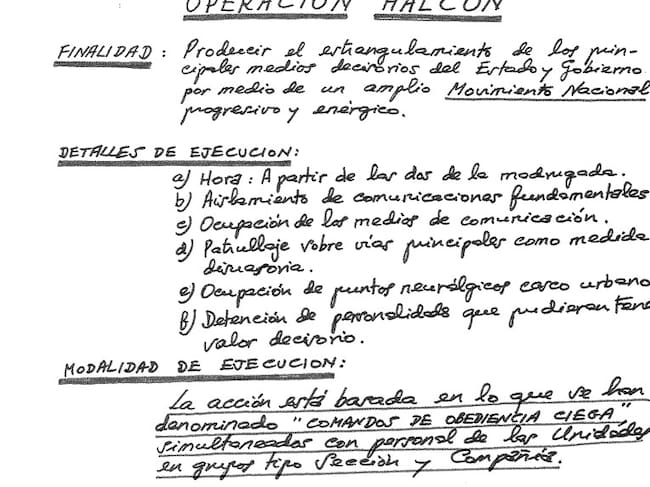 OPERACIÓN HALCÓN
FINALIDAD: Producir el estrangulamiento de los prin-
cipales medios decisorios del Estado y Gobierno
por medio de un amplio Movimiento Nacional
progresivo y enérgico.
DETALLES DE EJECUCION:
a) Hora: A partir de las dos de la madrugada.
b) Aislamiento de comunicaciones fundamentales
c) Ocupación de los medios de comunicación.
d) Patrullaje sobre vías principales como medida
disuasoria.
e) Ocupación de puntos neurálgicos casco urbano
f) Detención de personalidades que pudieran tene
valor decisorio.
MODALIDAD DE EJECUCION:
La acción está basada en lo que se han
denominado "COMANDOS DE OBEDIENCIA CIEGA",
simultaneados con personal de las Unidades
en grupos tipo Sección y Compañía.